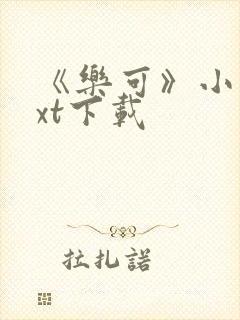 《樂可》小
xt下載
拉扎諾